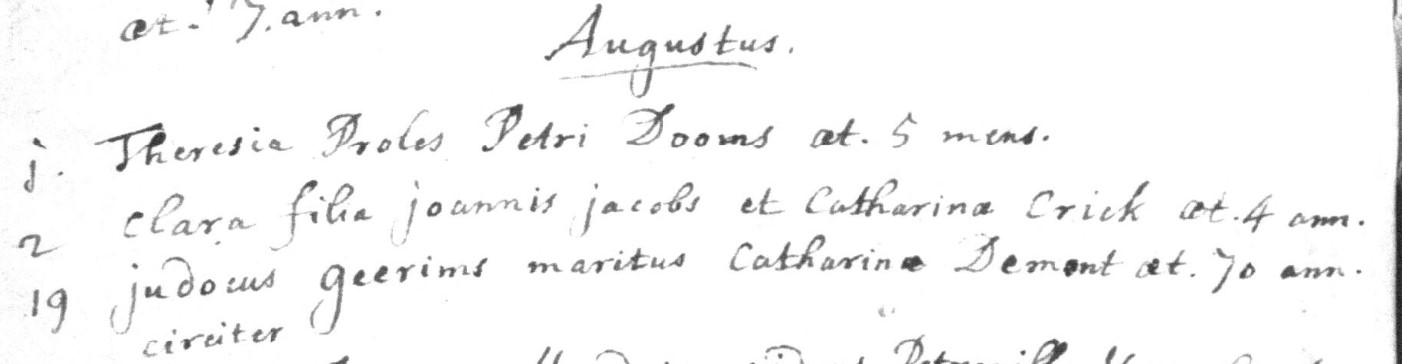 æt. 7. ann.
Augustus.
j. Theresia Proles Petri Dooms æt. 5 mens.
2 Clara filia joannis jacobs et Catharinæ Crick æt. 4 ann.
19 judocus geerims maritus Catharinæ Demont æt. 70 ann.
circiter